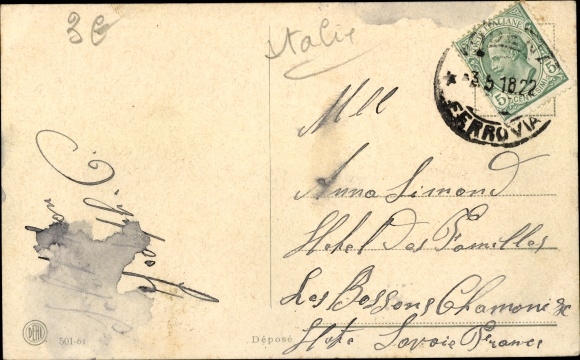 3 €
Italie
POSTE ITALIANE
5 5
CENTESIMI
3.5 18.22
FERROVIA
Mll
Anna Simond
Hotel Des Familles
Les Bossons Chamonix
Hote Savoie France
Joseph C.
501-64
Déposé